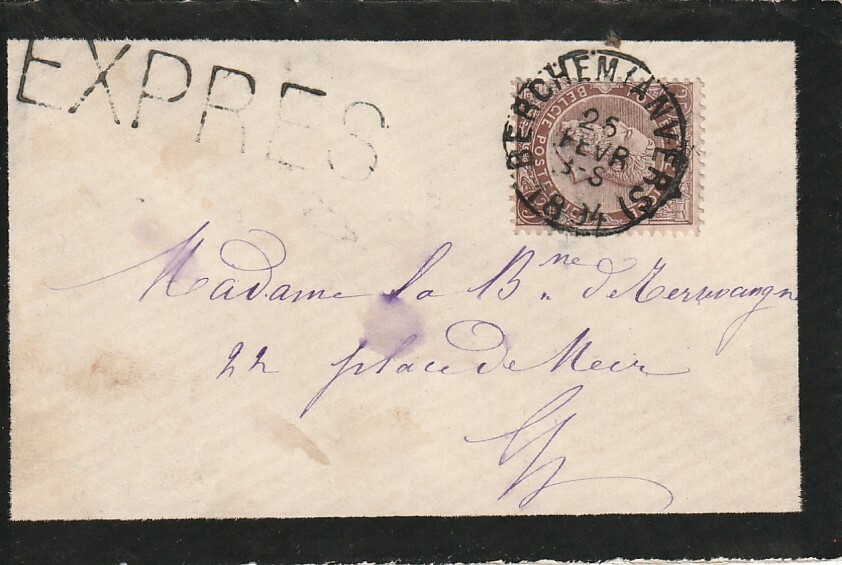 EXPRES
BERCHEM (ANVERS)
25
FEVR
-S
BELGIE POST
Madame la Bne de Terwangne
22 place de Meir